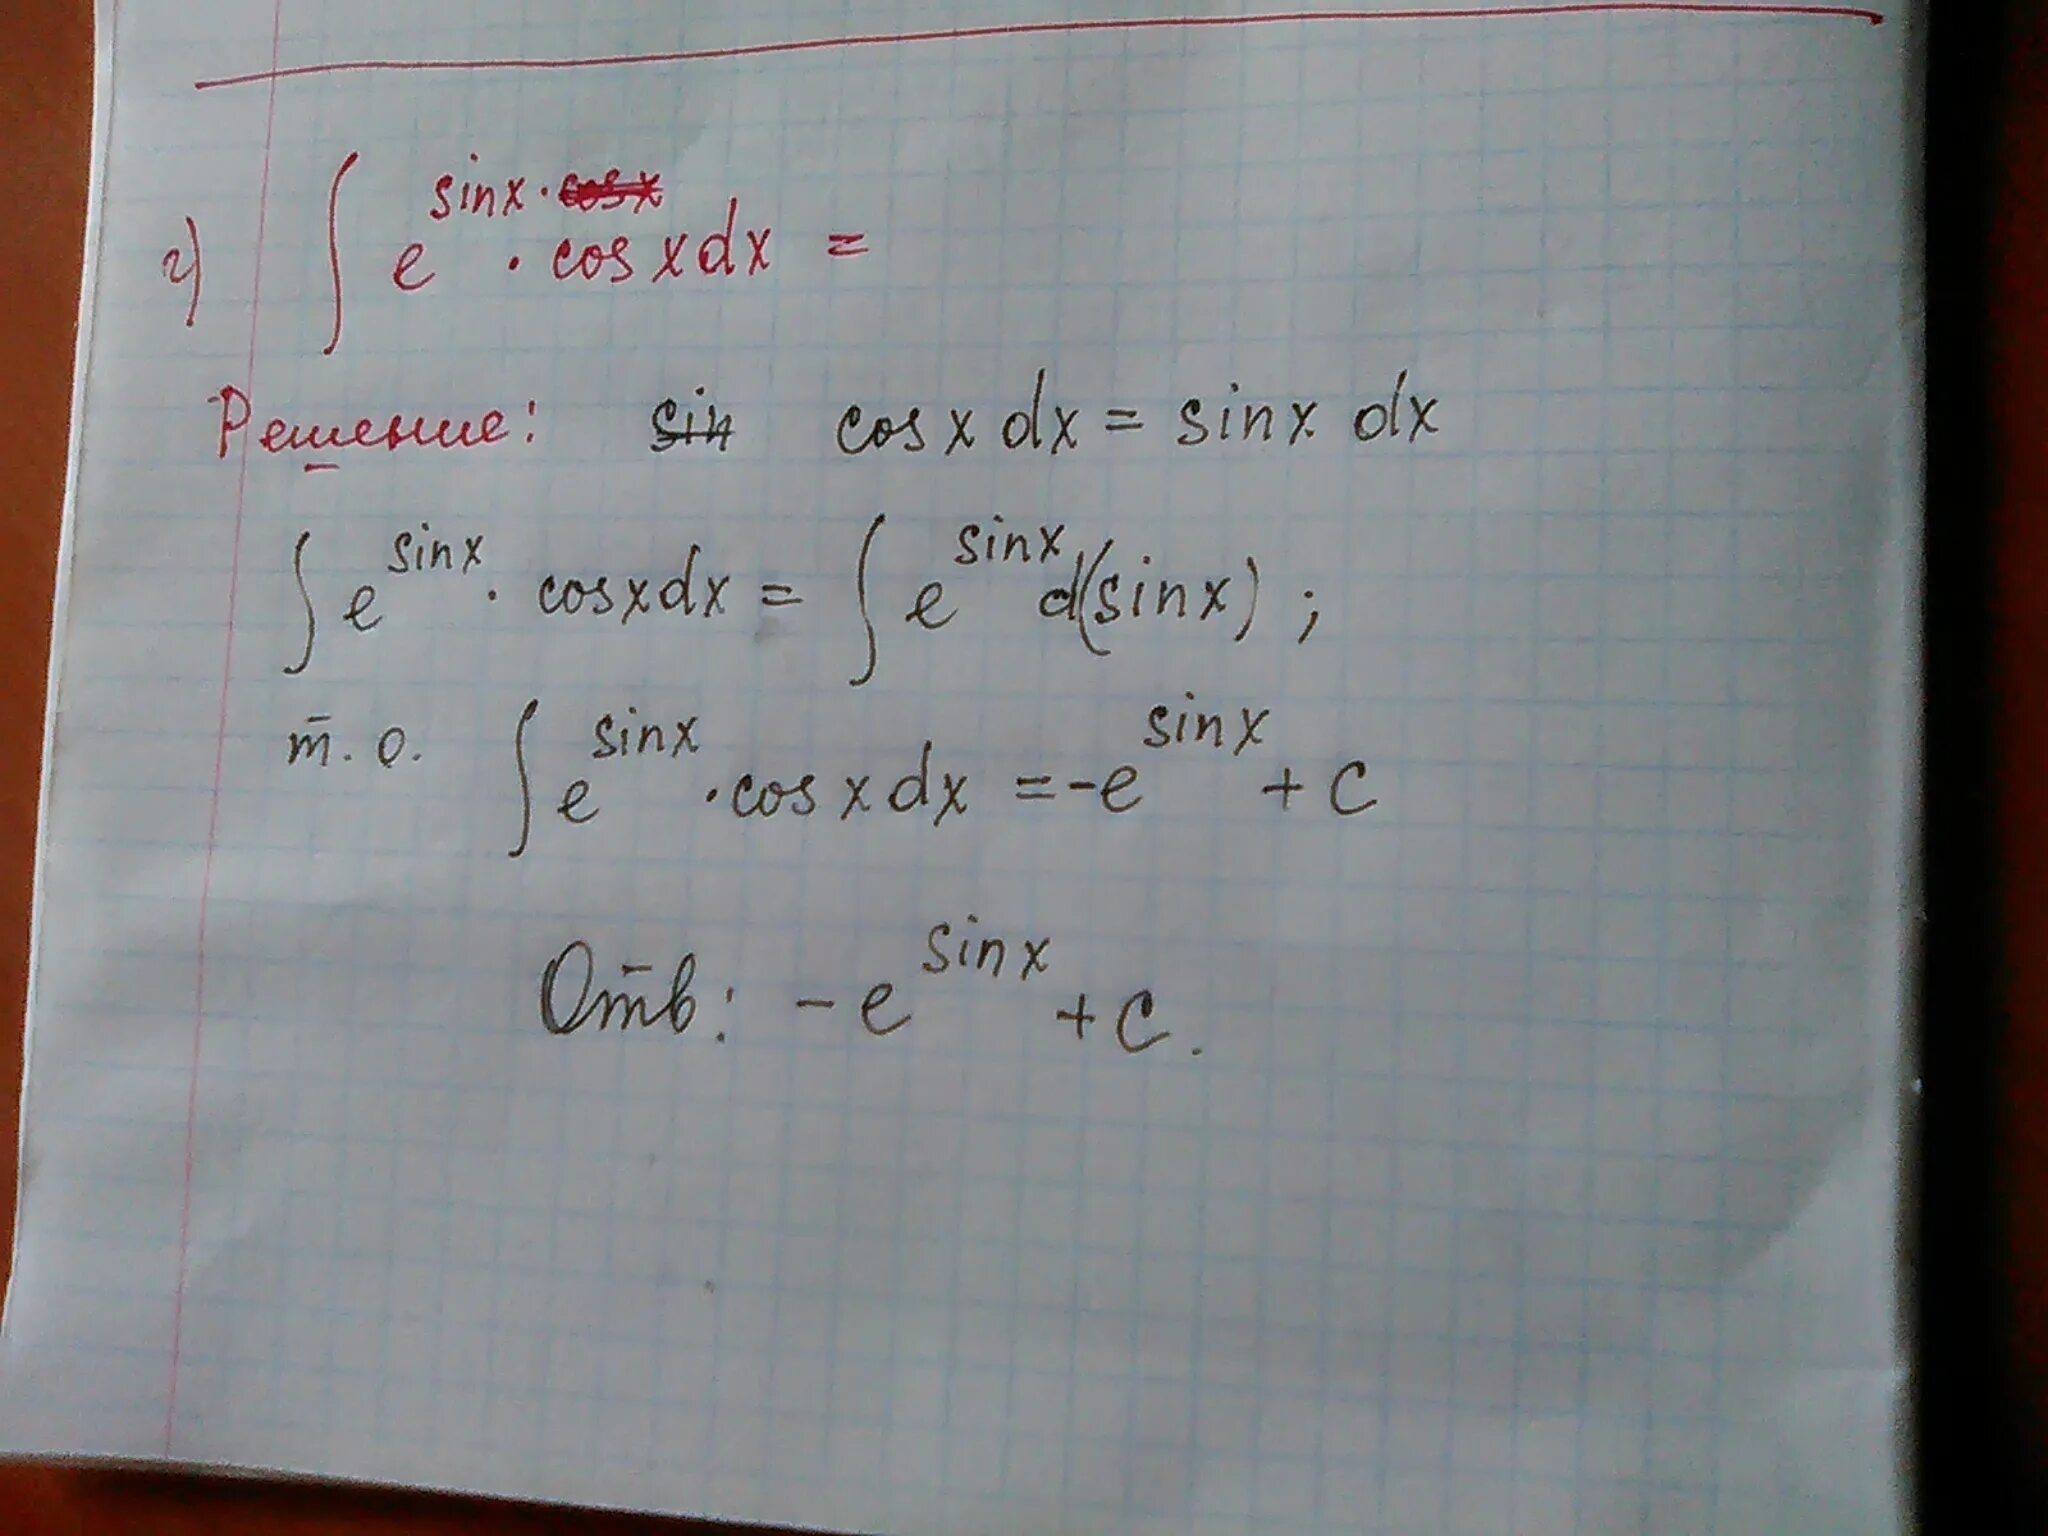 г) ∫ e^{sinx · ~~cosx~~} · cos x dx =
Решение: ~~sin~~ cos x dx = sinx dx
∫ e^{sinx} · cosxdx = ∫ e^{sinx} d(sinx) ;
т. о. ∫ e^{sinx} · cos x dx = -e^{sinx} + c
Отв: - e^{sinx} + c.